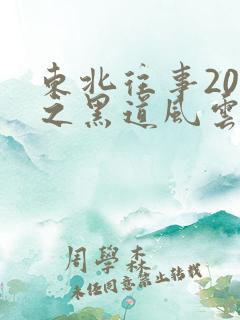 東北往事20
之黑道風雲
周學森
未经同意禁止转载